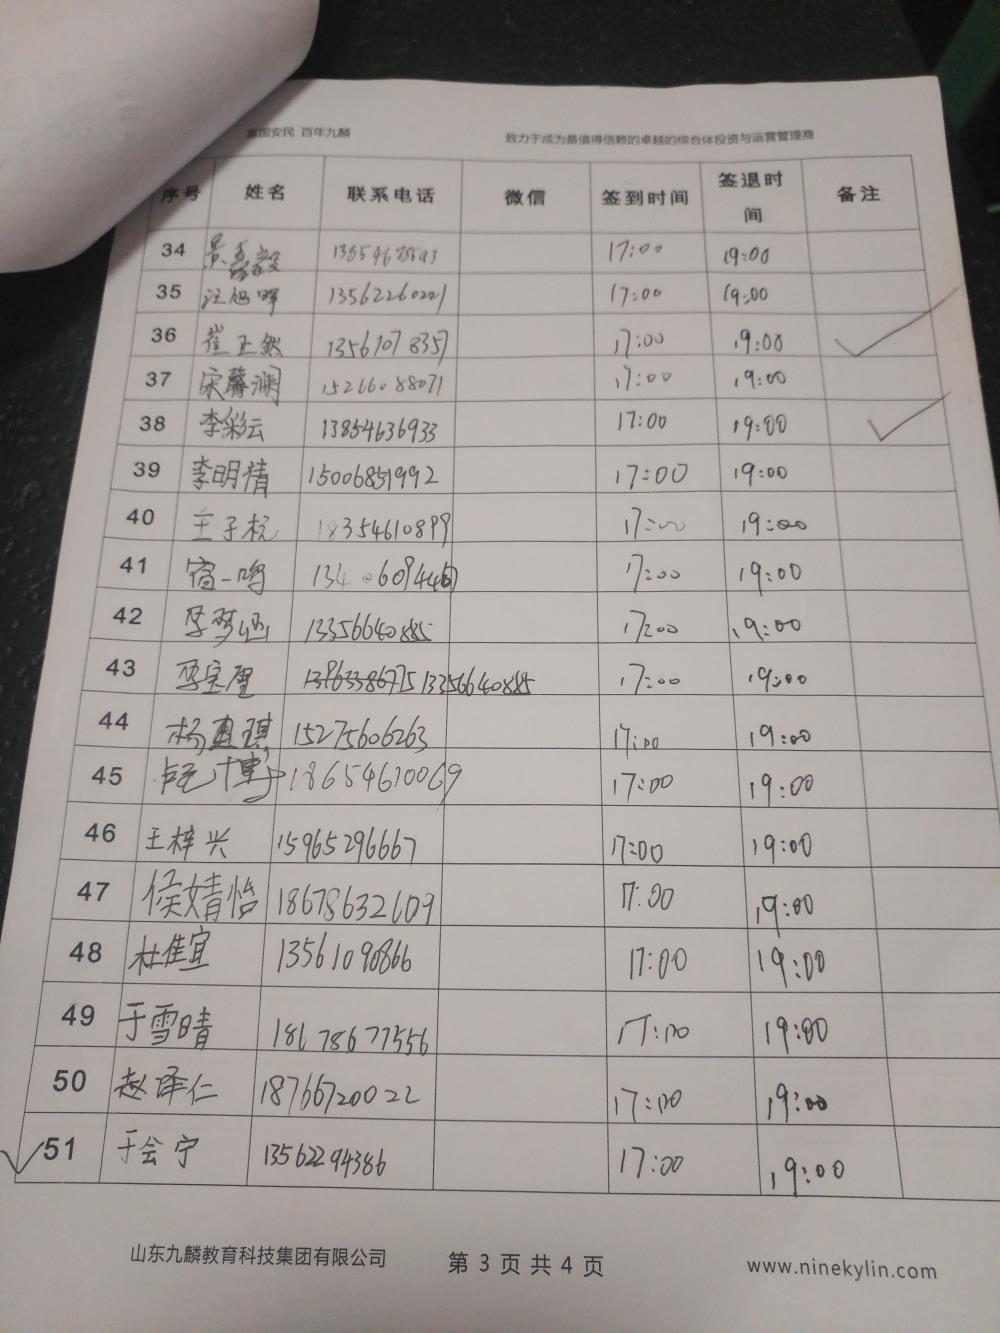 富国安民 百年九麟 致力于成为最值得信赖的卓越的综合体投资与运营管理商
序号 姓名 联系电话 微信 签到时间 签退时间 备注
34 17:00 19:00
35 汪旭晖 13562260221 17:00 19:00
36 崔正钦 13561078357 17:00 19:00
37 宋馨澜 15266088071 17:00 19:00
38 李彩云 13854636933 17:00 19:00
39 李明倩 15006851992 17:00 19:00
40 王子杭 18354610899 17:00 19:00
41 宿一鸣 17:00 19:00
42 李梦涵 13356640885 17:00 19:00
43 13863386715 13356640885 17:00 19:00
44 杨惠琪 15275606263 17:00 19:00
45 18654610069 17:00 19:00
46 王梓兴 15965296667 17:00 19:00
47 侯婧怡 18678632609 17:00 19:00
48 杜佳宜 13561090866 17:00 19:00
49 于雪晴 18678677556 17:00 19:00
50 赵泽仁 18766720022 17:00 19:00
51 于会宁 13562294386 17:00 19:00
山东九麟教育科技集团有限公司 第 3 页 共 4 页 www.ninekylin.com